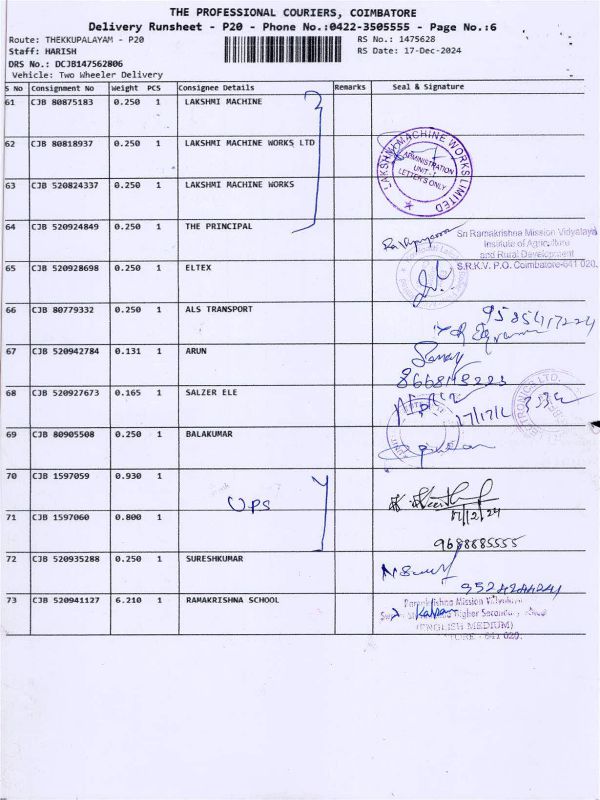 THE PROFESSIONAL COURIERS, COIMBATORE
Delivery Runsheet - P20 - Phone No.:0422-3505555 - Page No.:6
Route: THEKKUPALAYAM - P20 RS No.: 1475628
Staff: HARISH RS Date: 17-Dec-2024
DRS No.: DCJB147562806
Vehicle: Two Wheeler Delivery
S No Consignment No Weight PCS Consignee Details Remarks Seal & Signature
61 CJB 80875183 0.250 1 LAKSHMI MACHINE
62 CJB 80818937 0.250 1 LAKSHMI MACHINE WORKS LTD
LAKSHMI MACHINE WORKS LIMITED
ADMINISTRATION
UNIT-1
LETTERS ONLY
63 CJB 520824337 0.250 1 LAKSHMI MACHINE WORKS
64 CJB 520924849 0.250 1 THE PRINCIPAL
Sri Ramakrishna Mission Vidyalaya
Institute of Agriculture
and Rural Development
S.R.K.V. P.O. Coimbatore-641 020.
65 CJB 520928698 0.250 1 ELTEX
66 CJB 80779332 0.250 1 ALS TRANSPORT
67 CJB 520942784 0.131 1 ARUN
68 CJB 520927673 0.165 1 SALZER ELE
69 CJB 80905508 0.250 1 BALAKUMAR
70 CJB 1597059 0.930 1
UPS
17/12/24
71 CJB 1597060 0.800 1
9688885555
72 CJB 520935288 0.250 1 SURESHKUMAR
73 CJB 520941127 6.210 1 RAMAKRISHNA SCHOOL
Ramakrishna Mission Vidyalaya
Higher Secondary
(ENGLISH MEDIUM)
641 020.